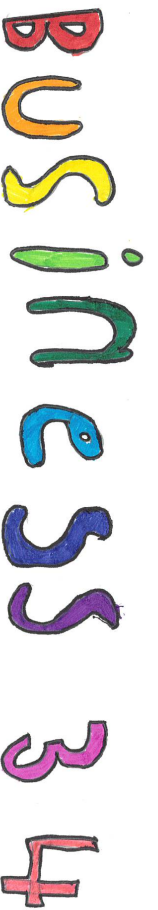 Business 34